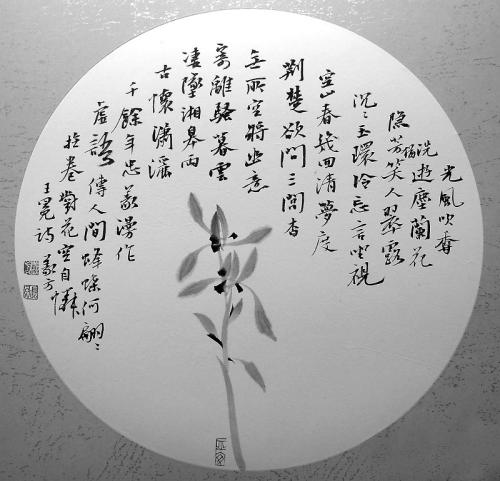 光風吹香
洗遊塵蘭花
隐芳笑人翠露
沉〻玉環冷忘言坐視
空山春幾回清夢度
荆楚欲問三閭香
無所空將幽意
寄離騷暮雲
淒墮湘皋雨
古懷瀟灑
千餘年忠義漫作
虛語傳人間蜂蝶何翩〻
捡卷對花空自憐
王冕詩 義方